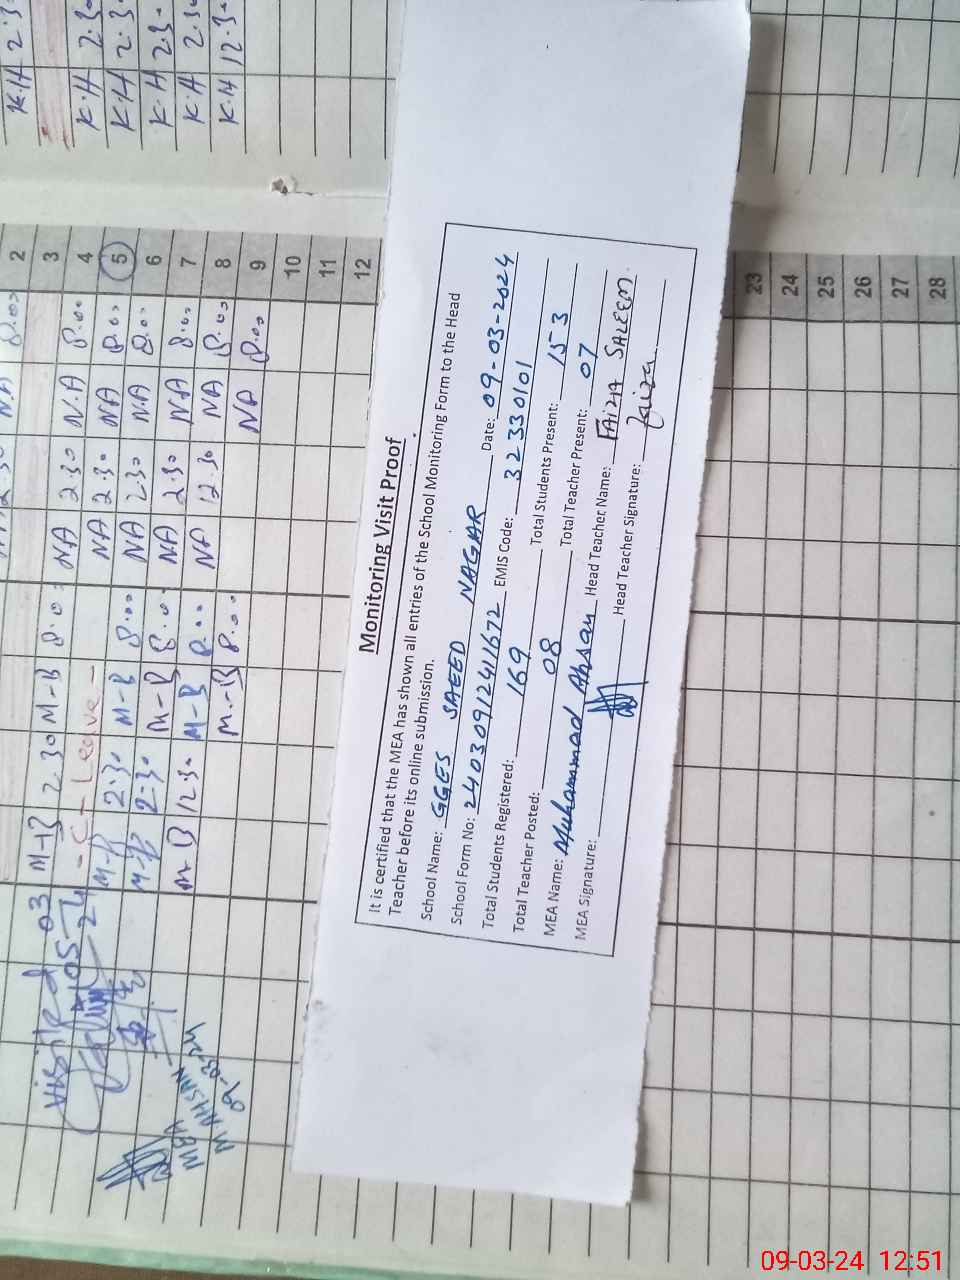 Monitoring Visit Proof
It is certified that the MEA has shown all entries of the School Monitoring Form to the Head
Teacher before its online submission.
School Name: GGES SAEED NAGAR Date: 09-03-2024
School Form No: 24030912411672 EMIS Code: 32330101
Total Students Registered: 169 Total Students Present: 153
Total Teacher Posted: 08 Total Teacher Present: 07
MEA Name: Muhammad Ahsan Head Teacher Name: FAIZA SALEEM.
MEA Signature: Head Teacher Signature: Faiza
K.H 2.3
K.H 2.3
K.H 2.3
K.H 2.3
K.H 2.3
K.H 12.3
2 8.00 NA
3
4 8.00 N.A 2.30 NA
5 8.00 NA 2.30 NA
6 8.00 NA 2.30 NA
7 8.00 NA 2.30 NA
8 8.00 NA 12.30 NA
9 8.00 NA
10
11
12
8.0 M-B 2.30 M-B
- C - Leave -
8.00 M-B 2.30 M-B
8.0 M-B 2.30 M-B
8.00 M-B 12.30 M B
8.00 M-B
visited 03
05
24
MEA
M AHSAN
09-03-24
23
24
25
26
27
28
09-03-24 12:51